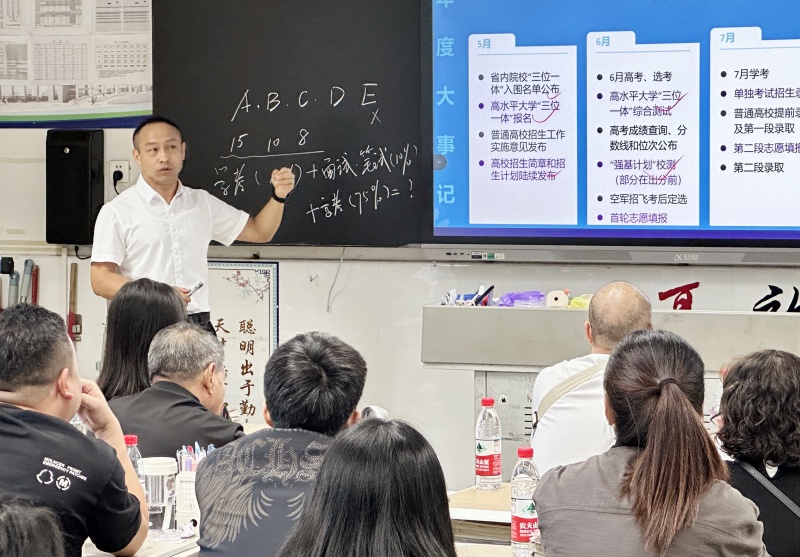 年度大事记
5月
省内院校“三位一
体”入围名单公布
高水平大学“三位
一体”报名
普通高校招生工作
实施意见发布
高校招生简章和招
生计划陆续发布
6月
6月高考、选考
高水平大学“三位
一体”综合测试
高考成绩查询、分
数线和位次公布
“强基计划”校测
（部分在出分前）
空军招飞考后定选
首轮志愿填报
7月
7月学考
单独考试招生录
普通高校提前录
及第一段录取
第二段志愿填报
第二段录取
A.B.C.D E
x
15 10 8
学考( ) + 面试 笔试(10%)
+ 高考(75%) = ?
聪明出于勤
天
农夫山泉
农夫山泉